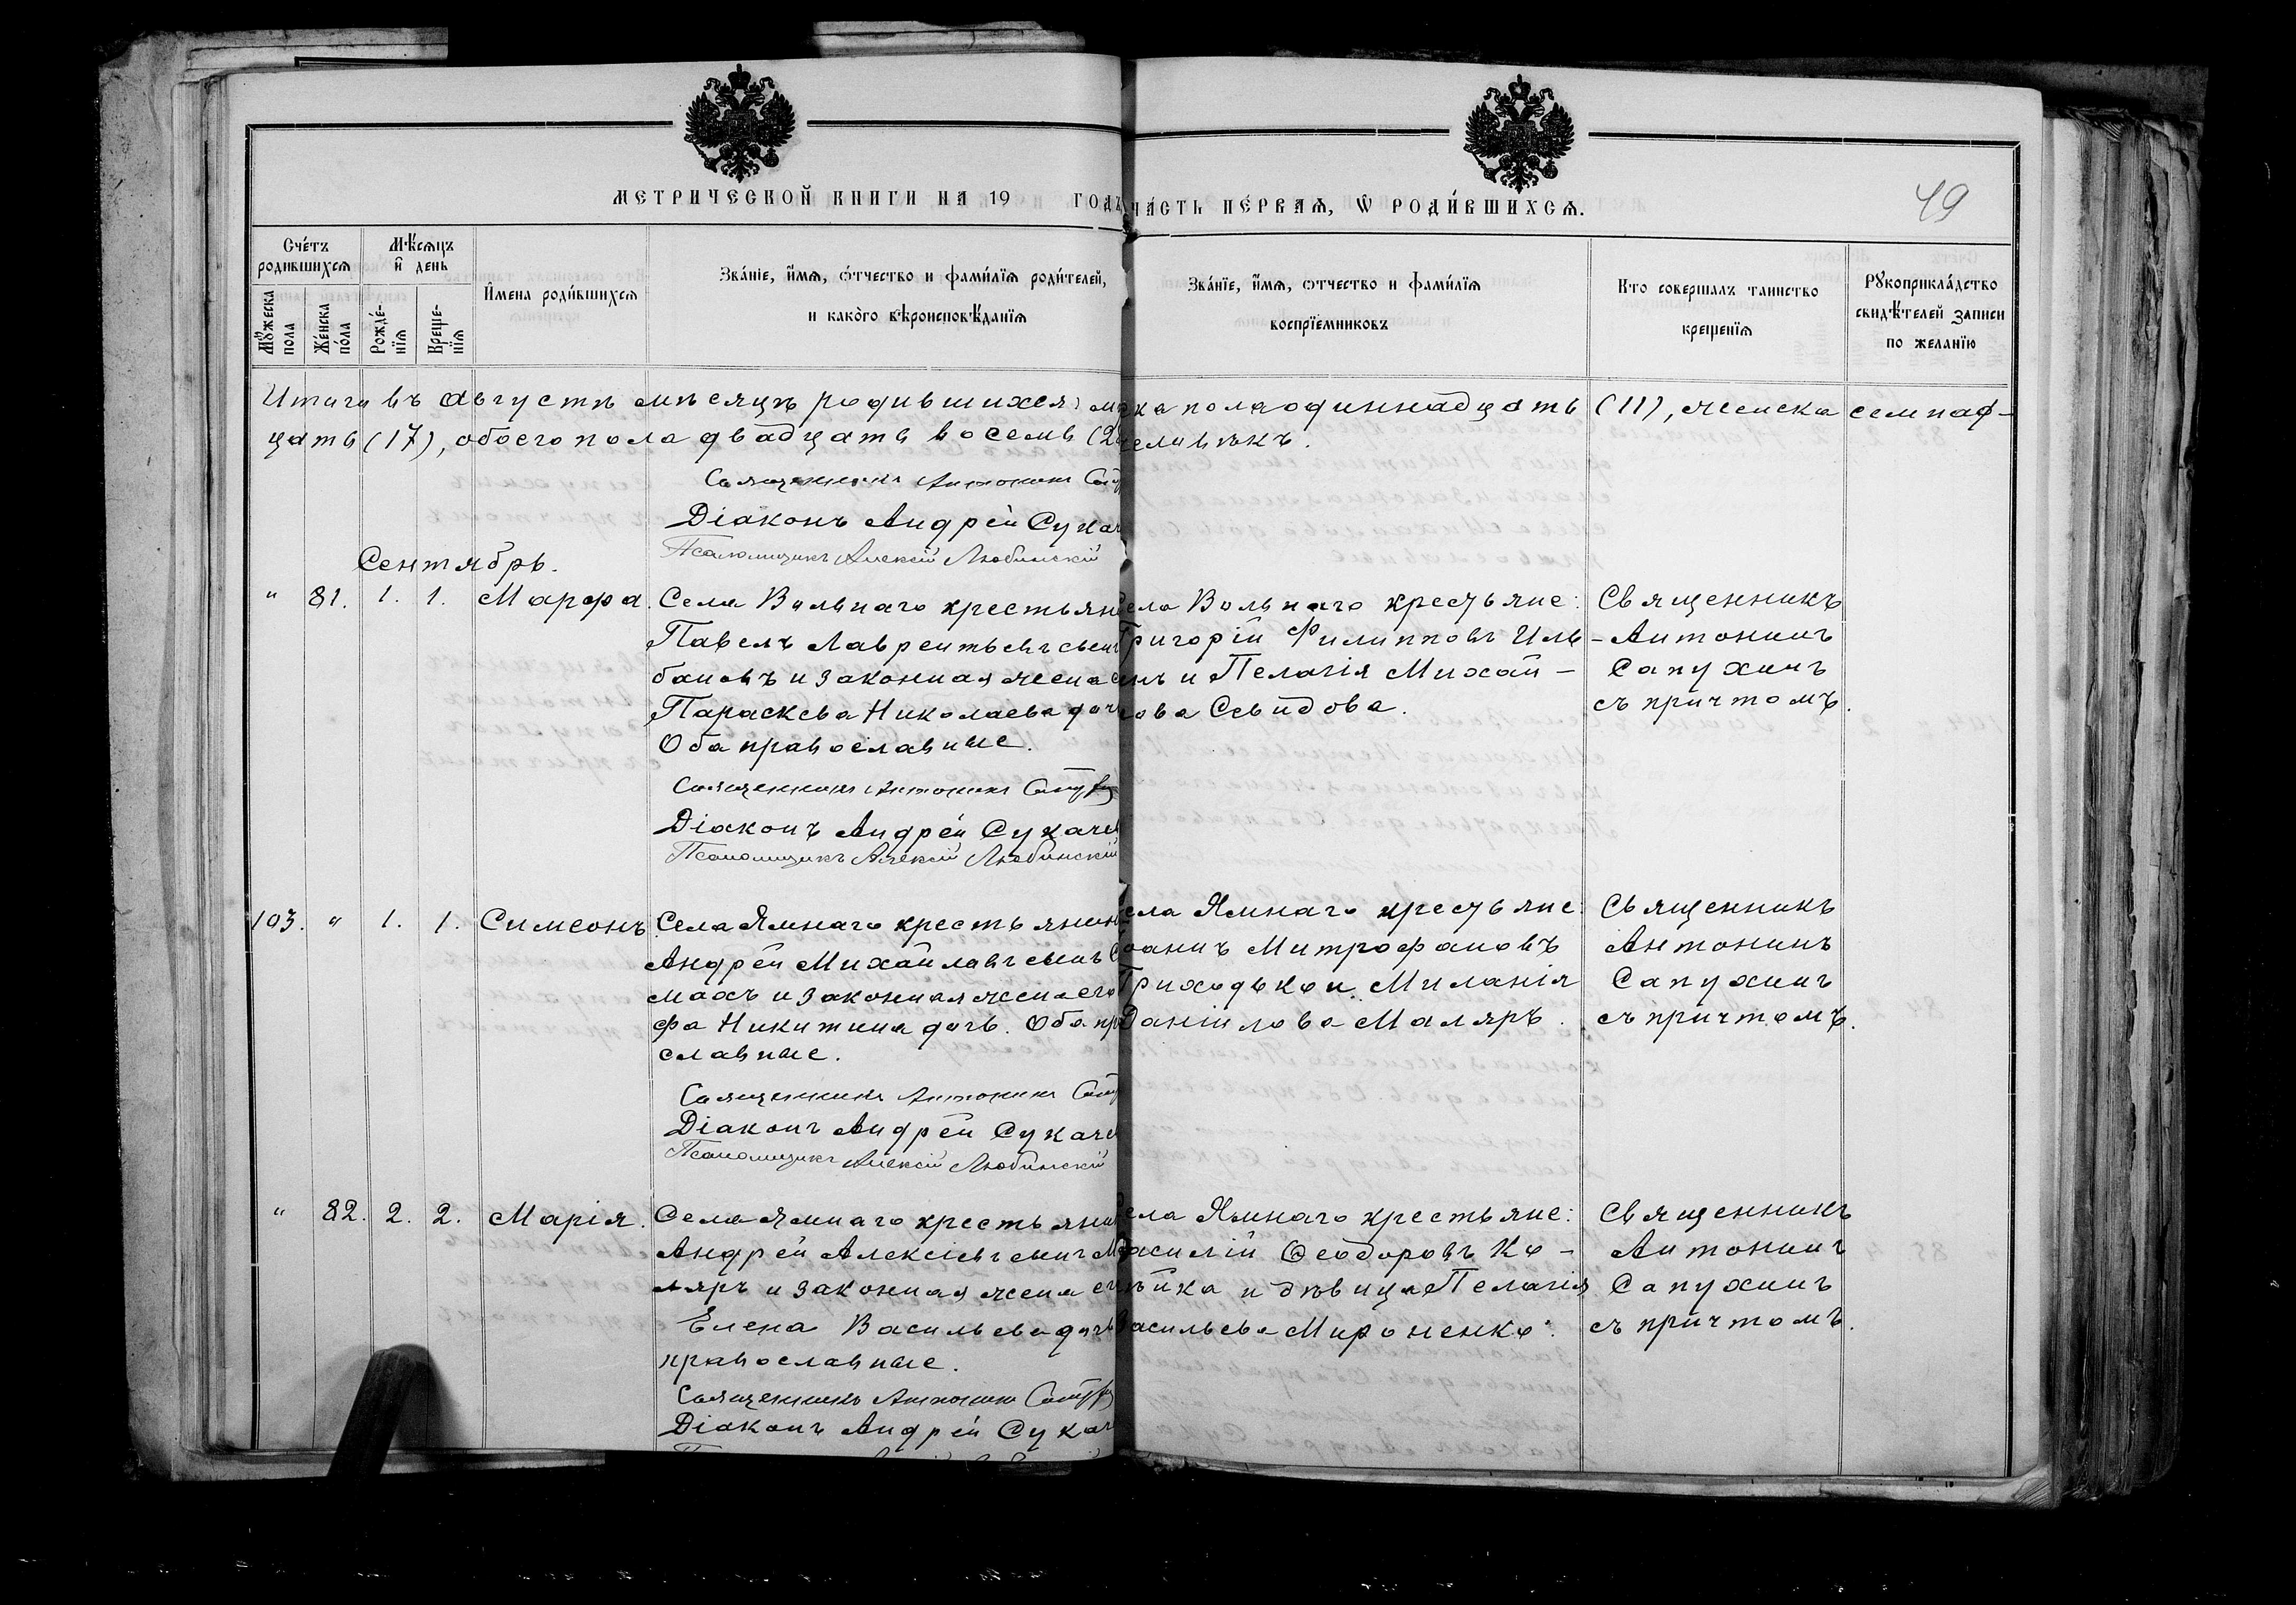 МЕТРИЧЕСКОЙ КНИГИ НА 19 ГОДЪ
ЧАСТЬ ПЕРВАЯ, Ѡ РОДИВШИХСЯ.
49
Счетъ родившихся
Мѣсяцъ и день
Мужеска пола
Женска пола
Рожденія
Крещенія
Имена родившихся
Званіе, имя, отчество и фамилія родителей,
и какого вѣроисповѣданія
Званіе, имя, отчество и фамилія
воспріемниковъ
Кто совершалъ таинство
крещенія
Рукоприкладство
свидѣтелей записи
по желанію
Итого въ Августѣ мѣсяцѣ родившихся: муж-ска пола одиннадцать (11), женска семнад-
цать (17), обоего пола двадцать восемь (2 человѣкъ.
Священникъ Антонинъ
Діаконъ Андрей Сукач
Псаломщикъ Алексій Любинскій
Сентябрь.
" 81. 1. 1. Марфа.
Села Вольнаго крестьянин
Павелъ Лаврентьевъ сынъ
бановъ и законная жена
Параскева Николаева доч
Оба православные.
Священникъ Антонинъ
Діаконъ Андрей Сукаче
Псаломщикъ Алексій Любинскій
села Вольнаго крестьяне:
Григорій Филипповъ Иль-
инъ и Пелагія Михай-
лова Свидова.
Священникъ
Антонинъ
Сапухинъ
съ причтомъ.
103. " 1. 1. Симеонъ.
Села Ямнаго крестьянин
Андрей Михайловъ сынъ
махъ и законная жена его
фа Никитина дочь. Оба пр
славные.
Священникъ Антонинъ
Діаконъ Андрей Сукаче
Псаломщикъ Алексій Любинскій
села Ямнаго крестьяне:
Іоаннъ Митрофановъ
Приходько и Миланія
Даніилова Маляръ.
Священникъ
Антонинъ
Сапухинъ
съ причтомъ.
" 82. 2. 2. Марія.
Села Ямнаго крестьянин
Андрей Алексіевъ сынъ М
ляръ и законная жена ег
Елена Васильева дочь
православные.
Священникъ Антонинъ
Діаконъ Андрей Сукач
села Ямнаго крестьяне:
Василій Ѳеодоровъ Ко-
пѣйка и дѣвица Пелагія
Васильева Мироненко.
Священникъ
Антонинъ
Сапухинъ
съ причтомъ.